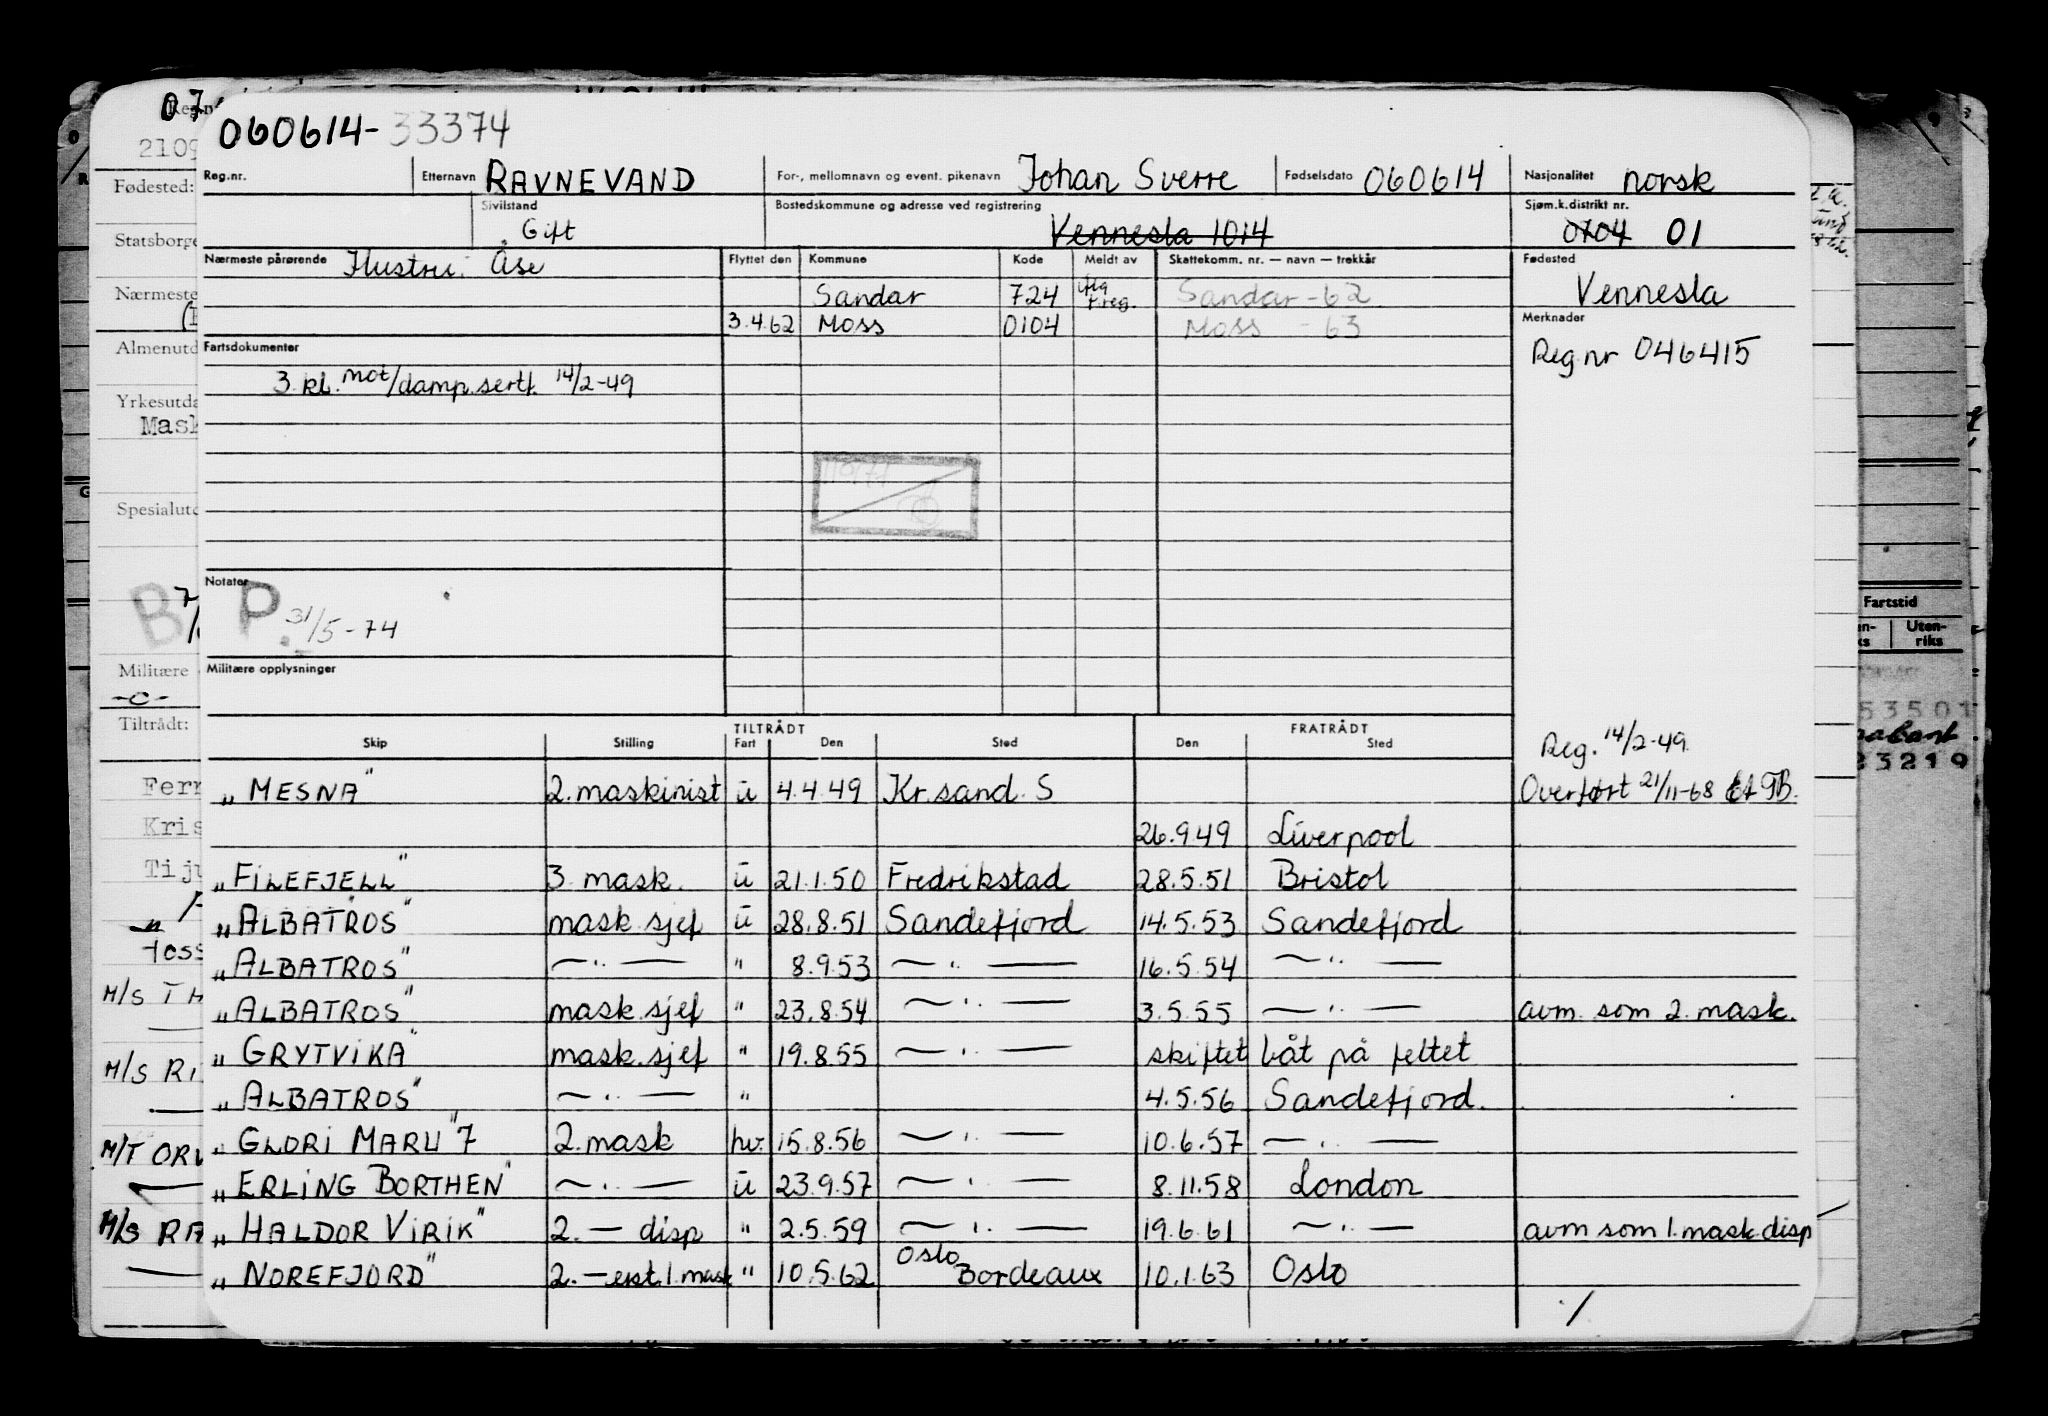 060614-33374
Reg.nr. Etternavn RAVNEVAND For-, mellomnavn og event. pikenavn Johan Sverre Fødselsdato 060614 Nasjonalitet norsk
Sivilstand Gift Bostedskommune og adresse ved registrering Vennesla 1014 Sjøm.k.distrikt nr. 0704 01
Nærmeste pårørende Hustru: Åse Flyttet den Kommune Kode Meldt av Skattekomm. nr. — navn — trekkår Fødested
Sandar 724 Sandar -62 Vennesla
3.4.62 Moss 0104 Moss - 63 Merknader
Fartsdokumenter Reg.nr 046415
3. kl. mot/damp.sert. 14/2-49
Notater
B P. 31/5-74
Militære opplysninger
TILTRÅDT FRATRÅDT
Skip Stilling Fart Den Sted Den Sted Reg. 14/2-49.
"MESNA" 2. maskinist u 4.4.49 Kr.sand. S Overført 21/11-68
26.9.49 Liverpool
"FILEFJELL" 3. mask. u 21.1.50 Fredrikstad 28.5.51 Bristol
"ALBATROS" mask.sjef u 28.8.51 Sandefjord 14.5.53 Sandefjord
"ALBATROS" —"— " 8.9.53 —"— 16.5.54 —"—
"ALBATROS" mask.sjef " 23.8.54 —"— 3.5.55 —"— avm. som 2. mask.
"GRYTVIKA" mask.sjef " 19.8.55 —"— skiftet båt på feltet
"ALBATROS" —"— " 4.5.56 Sandefjord.
"GLORI MARU" 7 2. mask hv. 15.8.56 —"— 10.6.57 —"—
"ERLING BORTHEN" —"— u 23.9.57 —"— 8.11.58 London
"HALDOR VIRIK" 2. — disp " 2.5.59 —"— 19.6.61 —"— avm som 1. mask disp
"NOREFJORD" 2. — erst. 1. mask " 10.5.62 Oslo Bordeaux 10.1.63 Oslo
07
Reg.n
2109
Fødested:
Statsborge
Nærmeste
Almenutd
Yrkesutda
Mask
Spesialutd
Militære
-o-
Tiltrådt:
Ferr
Kris
Tiju
Toss
M/S TH
M/S RI
M/T ORV
M/S RA
Fartstid
Uten-
riks
53501
23219